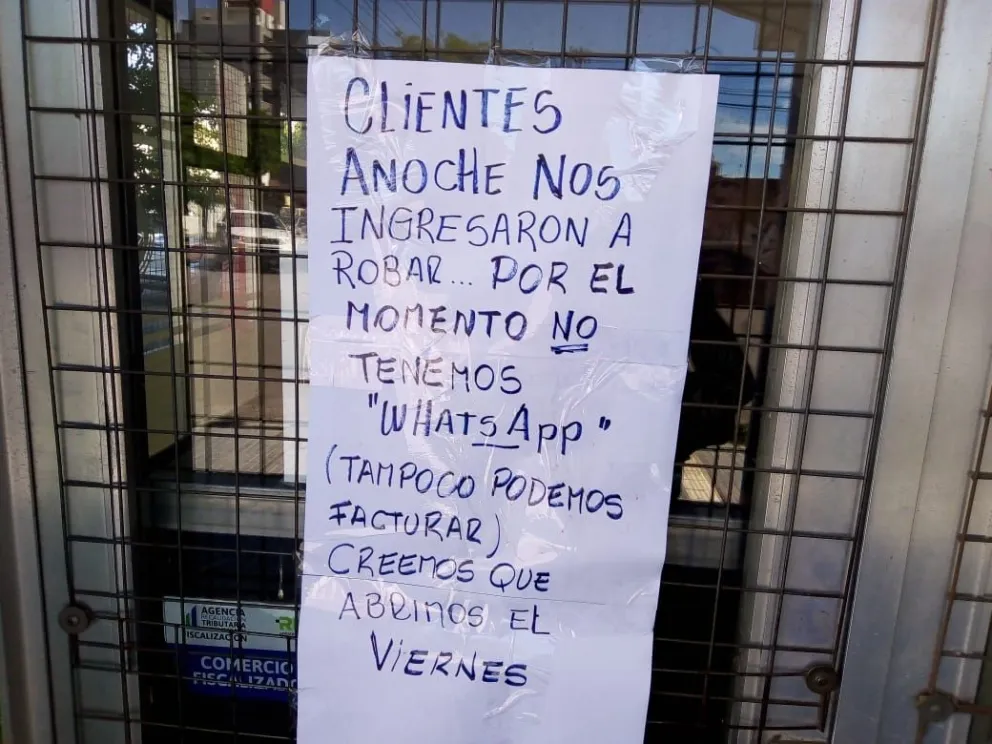 CLIENTES
ANOCHE NOS
INGRESARON A
ROBAR... POR EL
MOMENTO NO
TENEMOS
"WHATSAPP"
(TAMPOCO PODEMOS
FACTURAR)
CREEMOS QUE
ABRIMOS EL
VIERNES
AGENCIA
RECAUDACIÓN
TRIBUTARIA
FISCALIZACIÓN
COMERCIO
FISCALIZADO